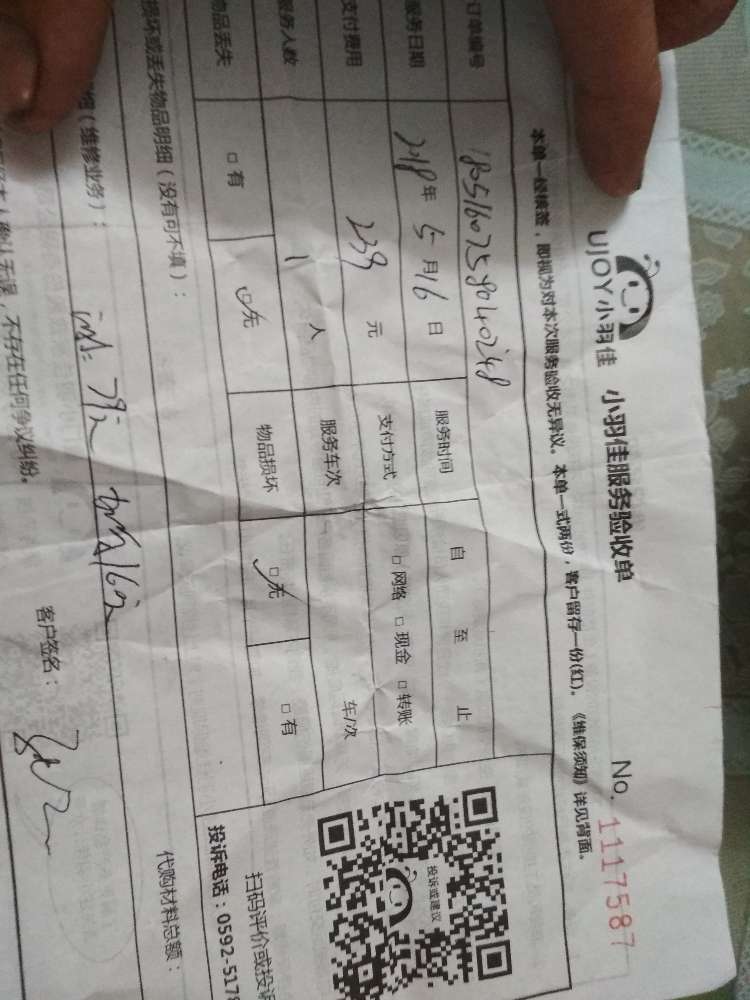 UJOY 小羽佳 小羽佳服务验收单 No. 1117587
本单一经续签,即视为对本次服务验收无异议。本单一式两份,客户留存一份(红)。《维保须知》详见背面。
订单编号 185160258040248
服务日期 2018年 5月16日 服务时间 自 至 止
支付费用 239 元 支付方式 □网络 □现金 □转账
服务人数 1 人 服务车次 车/次
物品丢失 □有 □无 物品损坏 □无 □有
损坏或丢失物品明细(没有可不填):
细(维修业务):
79元 160元
代购材料总额:
无误,不存在任何争议纠纷。
客户签名:
投诉或建议
扫码评价或投诉
投诉电话:0592-5178